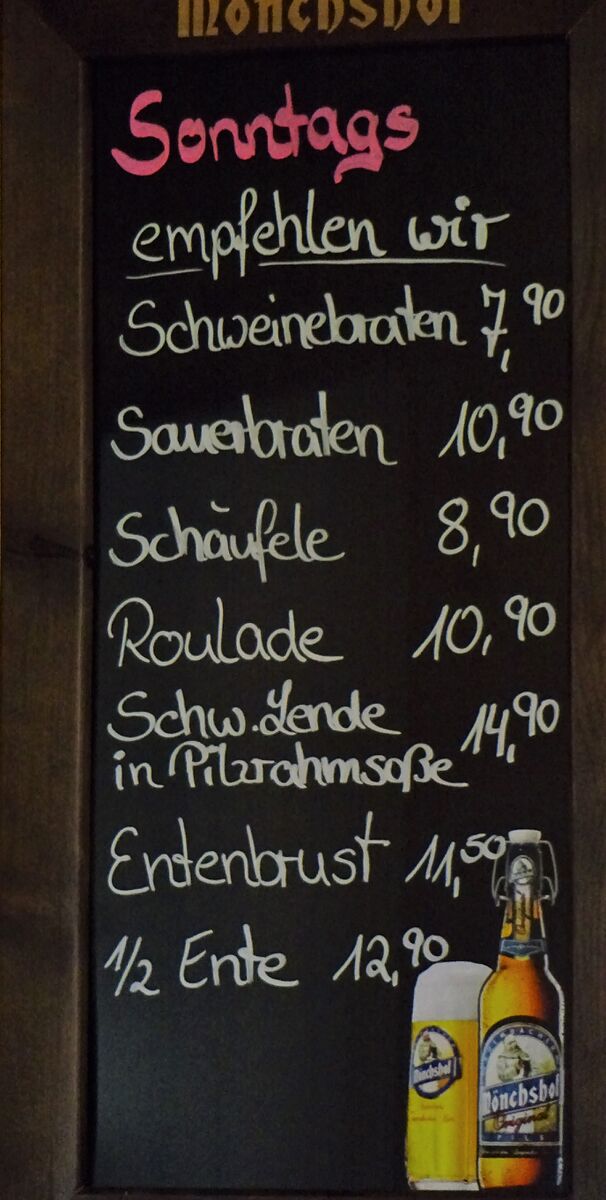 Mönchshof
Sonntags
empfehlen wir
Schweinebraten 7,90
Sauerbraten 10,90
Schäufele 8,90
Roulade 10,90
Schw. Lende
in Pilzrahmsoße 14,90
Entenbrust 11,50
1/2 Ente 12,90
Mönchshof
Mönchshof
Original
PILS